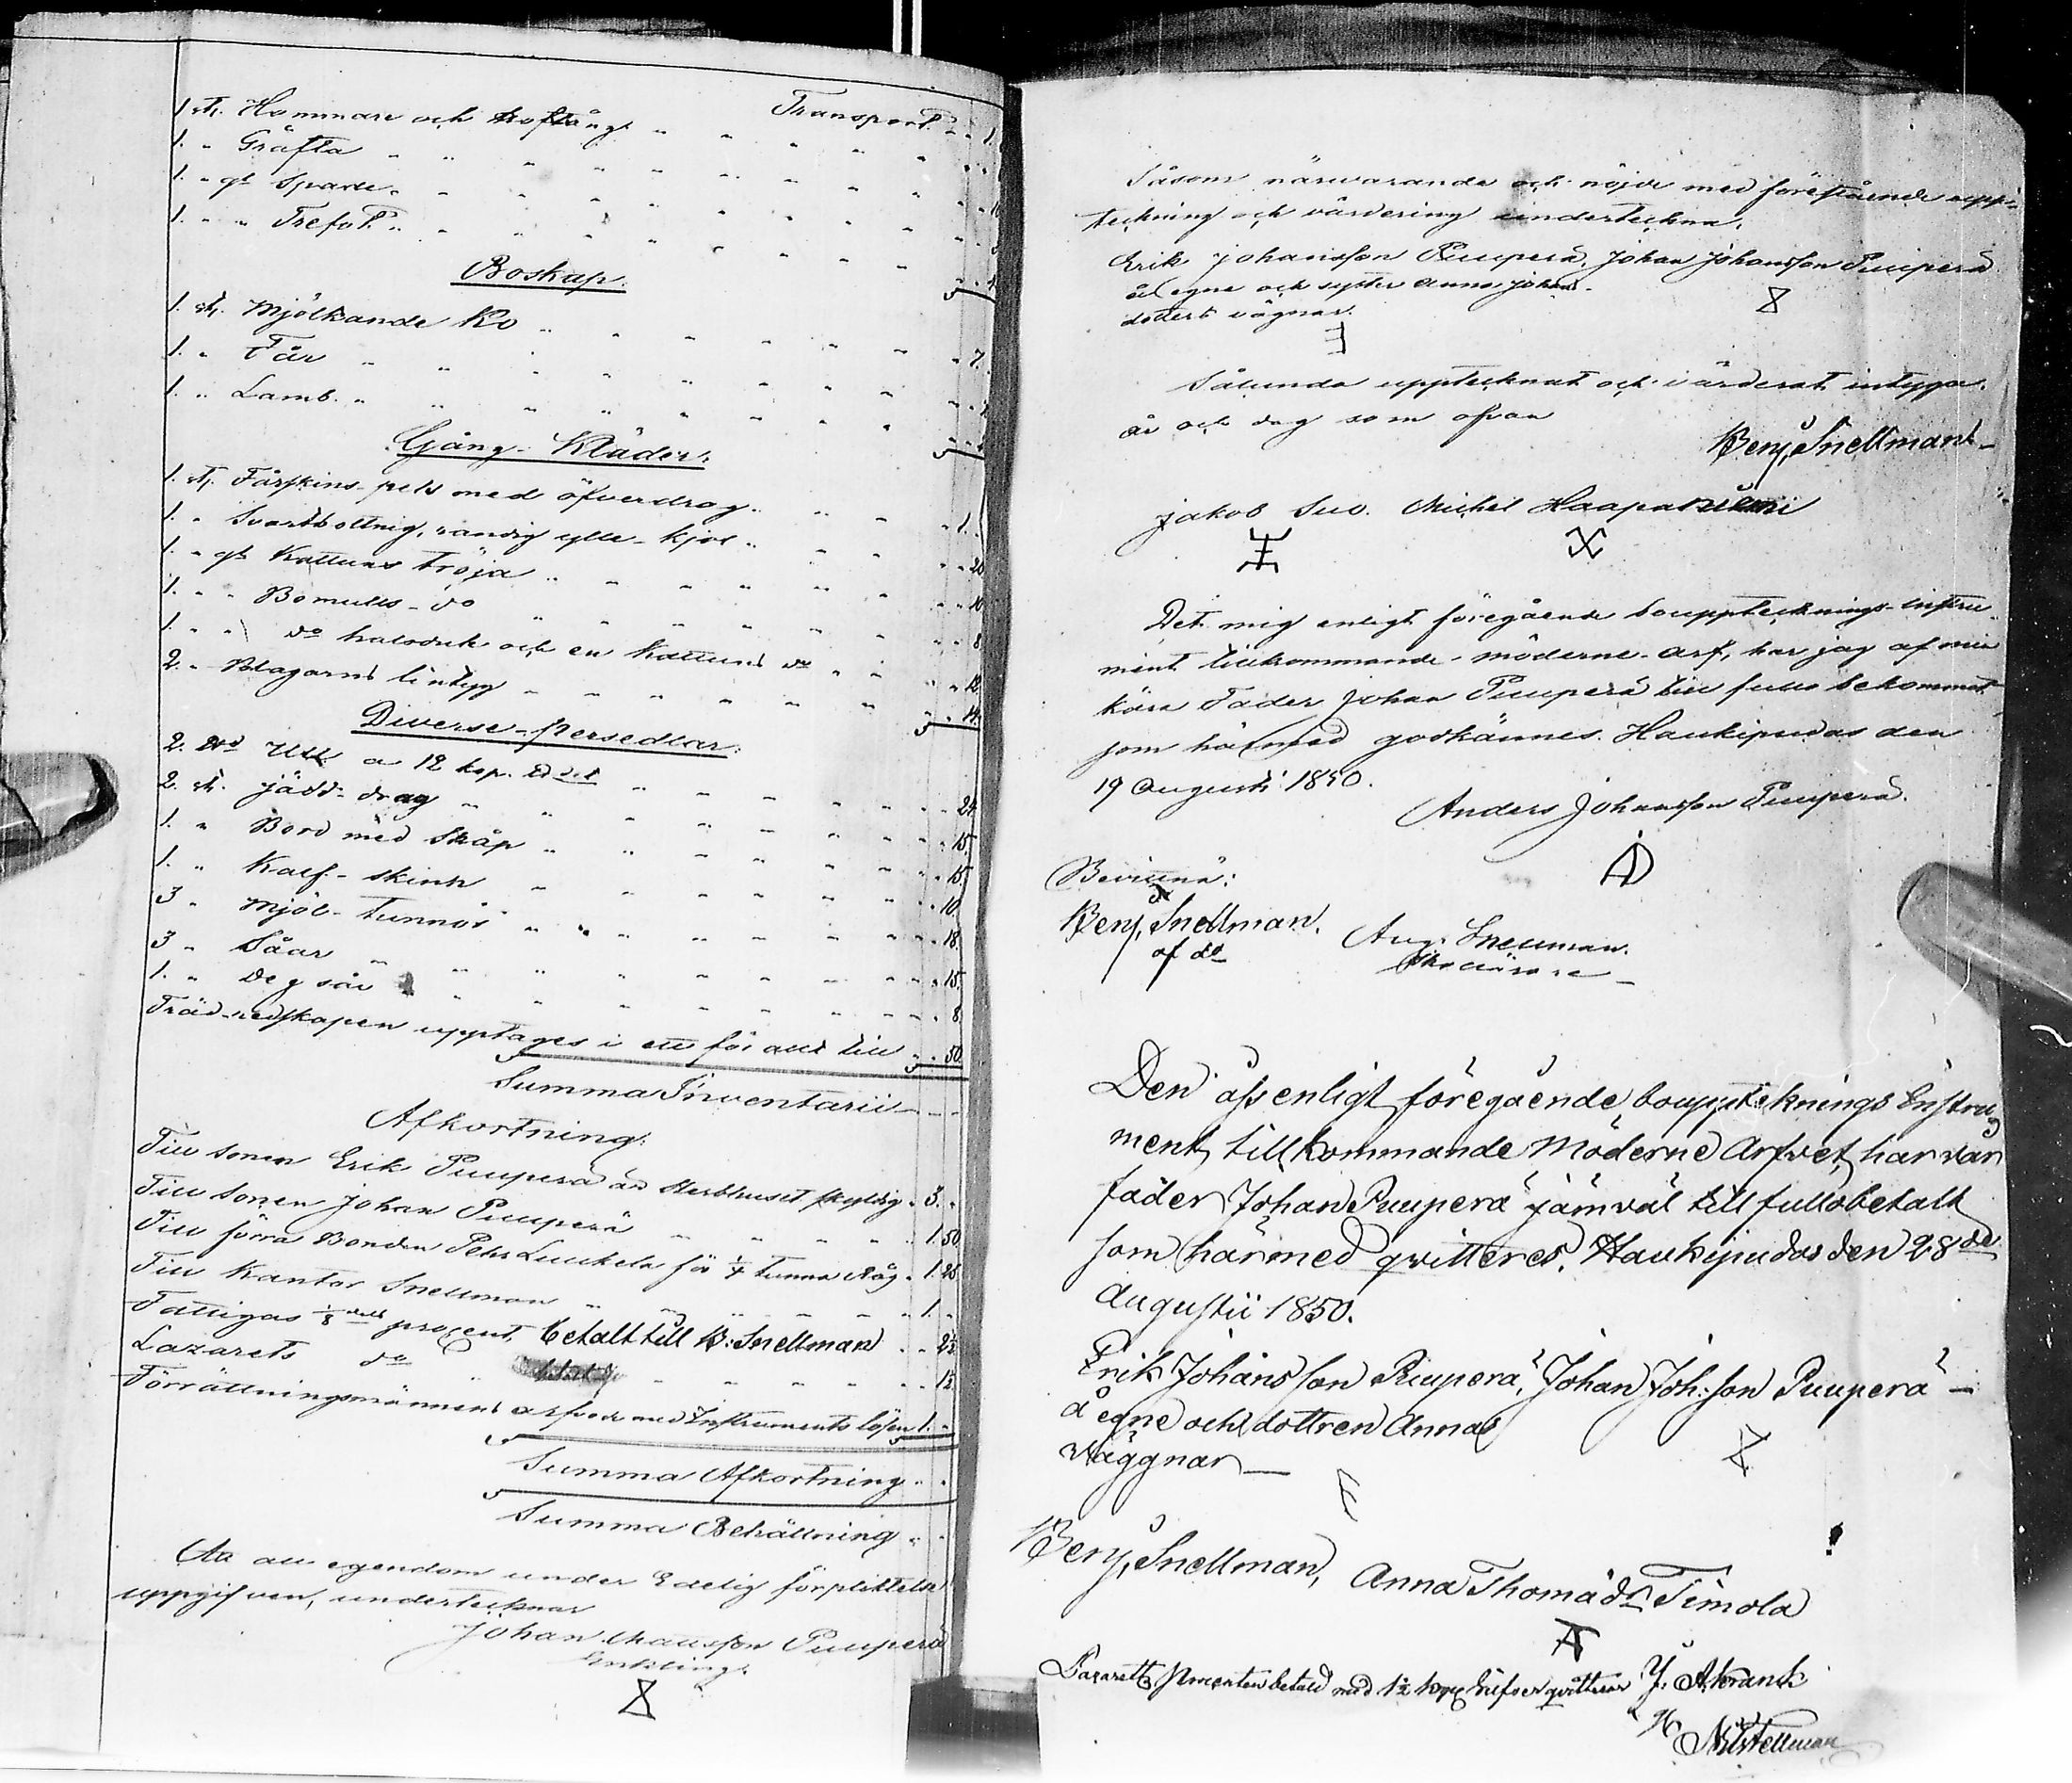 Transport. " " 1.
1 st. Hammare och Hoftång " "
1. " Gräfta " "
1. " gl Spade " " 10
1. " " Trefot. " "
Boskap.
1. st. Mjölkande Ko " " 7.
1. " Får " "
1. " Lamb. " "
Gång-Kläder.
1. st. Fårskins-pels med öfverdrag " " 1.
1. " Svartbottnig, randig ylle-kjol " " 20
1. " gl Kattuns tröja " " 10
1. " " Bomulls-do " " 8
1. " " do halsduk och en Kattuns do " " 12
2. " Blagarns lintyg " " 14
Diverse-Persedlar.
2. Ull a 12 kop. " " 24
2. st. jädd-drag " " 15.
1. " Bord med Skåp " " 15.
1. " Kalf-skinn " " 10
3 " Mjöl-Tunnor " " 18.
3 " Såar " " 15.
1. " Deg sår " " 8.
Träd-redskapen upptages i ett för allt till " " 50.
Summa Inventarii
Afkortning.
Till sonen Erik Puuperä är sterbhuset skyldig " 3. "
Till sonen Johan Puuperä " " 1.50
Till förra Bonden Pehr Luukela för 1/4 tunna Råg " 1.25
Till Kantor Snellman " " 1. "
Fattigas 1/8 dels procent, betalt till B: Snellman " " 2½
Lazarets do " " 1½
Förrättningsmännens arfvode med Instruments lösen 1. "
Summa Afkortning " "
Summa Behållning " "
Att all egendom under Edelig förpliktelse
uppgifven, undertecknar
Johan Mattsson Puuperä
Enkling.
Såsom närvarande och nöjde med förestående upp-
teckning och värdering underteckna.
Erik Johansson Puuperä, Johan Johansson Puuperä
å egne och syster Anna Johans-
dotters vägnar.
Sålunda upptecknat och värderat intyga.
år och dag som ofvan
Benj. Snellman
Jakob Suo. Michel Haapaniemi
Det mig enligt föregående bouppteknings-Instru-
ment tillkommande möderne-arf, har jag af min
kära Fader Johan Puuperä till fullo bekommit
som härmed godkännes. Haukipudas den
19 Augusti 1850.
Anders Johansson Puuperä.
Bevittna:
Benj. Snellman. Aug. Snellman.
af do
Den åss enligt föregående bouppteknings Instru
ment, tillkommande Möderne Arfvet, har vår
fader Johan Puuperä jämväl till fullo betalt
som härmed qvitteres. Haukipudas den 28de
Augustii 1850.
Erik Johansson Puuperä, Johan Joh:son Puuperä
å egne och dottren Annas
wäggnar
Benj. Snellman, Anna Thomädr Timola
A
Lazaretts Procenten betald med 1½ kop hvilket qvitterar J. Akrank